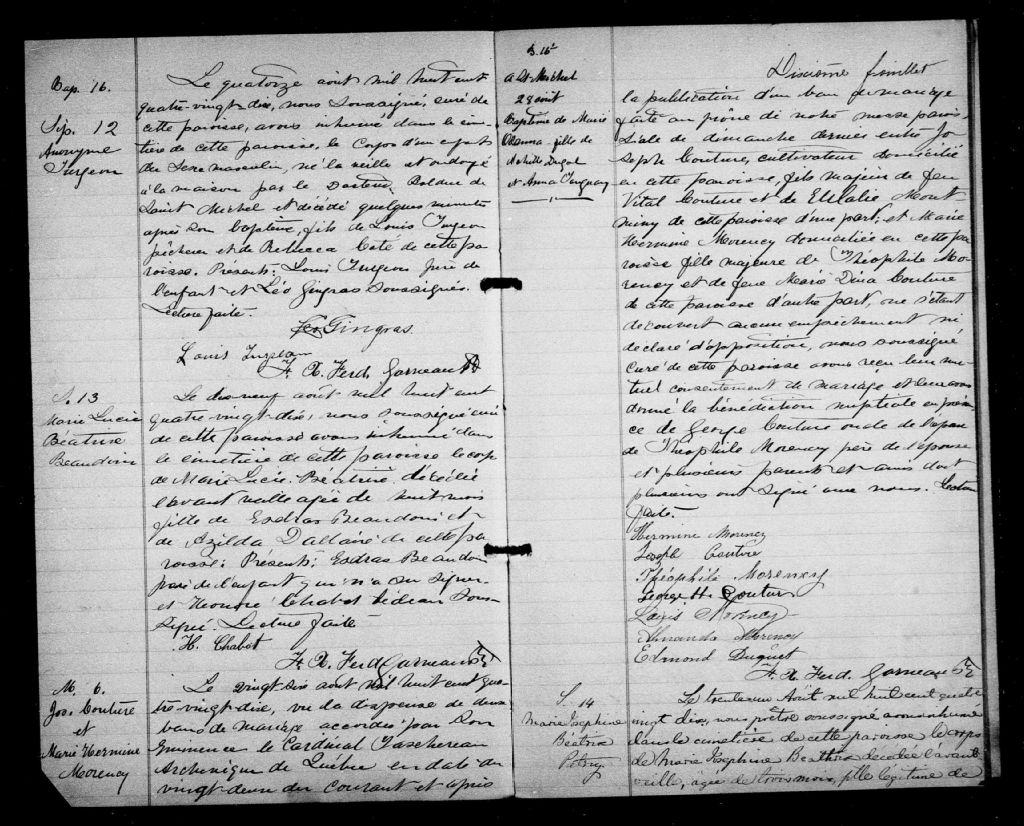 Bap. 16.
Sép. 12
Anonyme
Turgeon
Le quatorze aout mil huit cent
quatre-vingt-dix, nous soussigné, curé de
cette paroisse, avons inhumé dans le cime-
tière de cette paroisse, le corps d'un enfant
du sexe masculin, né la veille et ondoyé
à la maison par le Docteur Belden de
Saint Michel et décédé quelques minutes
après son baptême, fils de Louis Turgeon
pêcheur et de Rebecca Coté de cette pa-
roisse. Présents: Louis Turgeon père de
l'enfant et Léo Gingras soussignés.
Lecture faite.
Leo Gingras
Louis Turgeon
F. X. Ferd. Garneau Ptre
S. 13
Marie Lucie
Béatrise
Beaudoin
Le dix neuf août mil huit cent
quatre-vingt-dix, nous soussigné curé
de cette paroisse avons inhumé dans
le cimetière de cette paroisse le corps
de Marie Lucie Béatrise, décédée
l'avant veille agée de huit mois
fille de Esdras Beaudoin et
de Azilda Dallaire de cette pa-
roisse: Présents; Esdras Beaudoin
père de l'enfant qui n'a su signer
et Honoré Chabot bédeau sous-
signé. Lecture faite
H. Chabot
F. X. Ferd Garneau Ptre
M. 6.
Jos. Couture
et
Marie Hermine
Morency
Le vingt six aout mil huit cent qua-
tre-vingt-dix, vu la dispense de deux
bans de mariage accordée par Son
Eminence le Cardinal Taschereau
Archevêque de Québec en date du
vingt deux du courant et après
B. 16½
a St-Michel
28 août
Baptême de Marie
fille de
et Anna
Dixième feuillet
la publication d'un ban de mariage
faite au prône de notre messe parois-
siale de dimanche dernier entre Jo
seph Couture, cultivateur domicilié
en cette paroisse, fils majeur de feu
Vital Couture et de Eulalie Mont-
miny de cette paroisse d'une part; et Marie
Hermine Morency domiciliée en cette pa
roisse fille majeure de Théophile Mo-
rency et de feue Marie Dina Couture
de cette paroisse d'autre part, ne s'étant
découvert aucun empêchement ni
déclaré d'opposition, nous soussigné
curé de cette paroisse avons reçu leur mu-
tuel consentement de mariage et leur avons
donné la bénédiction nuptiale en présen
ce de George Couture oncle de l'époux
de Théophile Morency père de l'épouse
et plusieurs parents et amis dont
plusieurs ont signé avec nous. Lecture
faite.
Hermine Morency
Joseph Couture
Théophile Morency
George H. Couture
Louis Morency
Amanda Morency
Edmond Duquet
F. X. Ferd. Garneau Ptre
S. 14
Marie Josephine
Béatrise
Le trente un Août mil huit cent quatre
vingt dix, nous prêtre soussigné avons inhumé
dans le cimetière de cette paroisse le corps
de Marie Josephine Béatrise décédée l'avant
veille, âgée de trois mois, fille légitime de